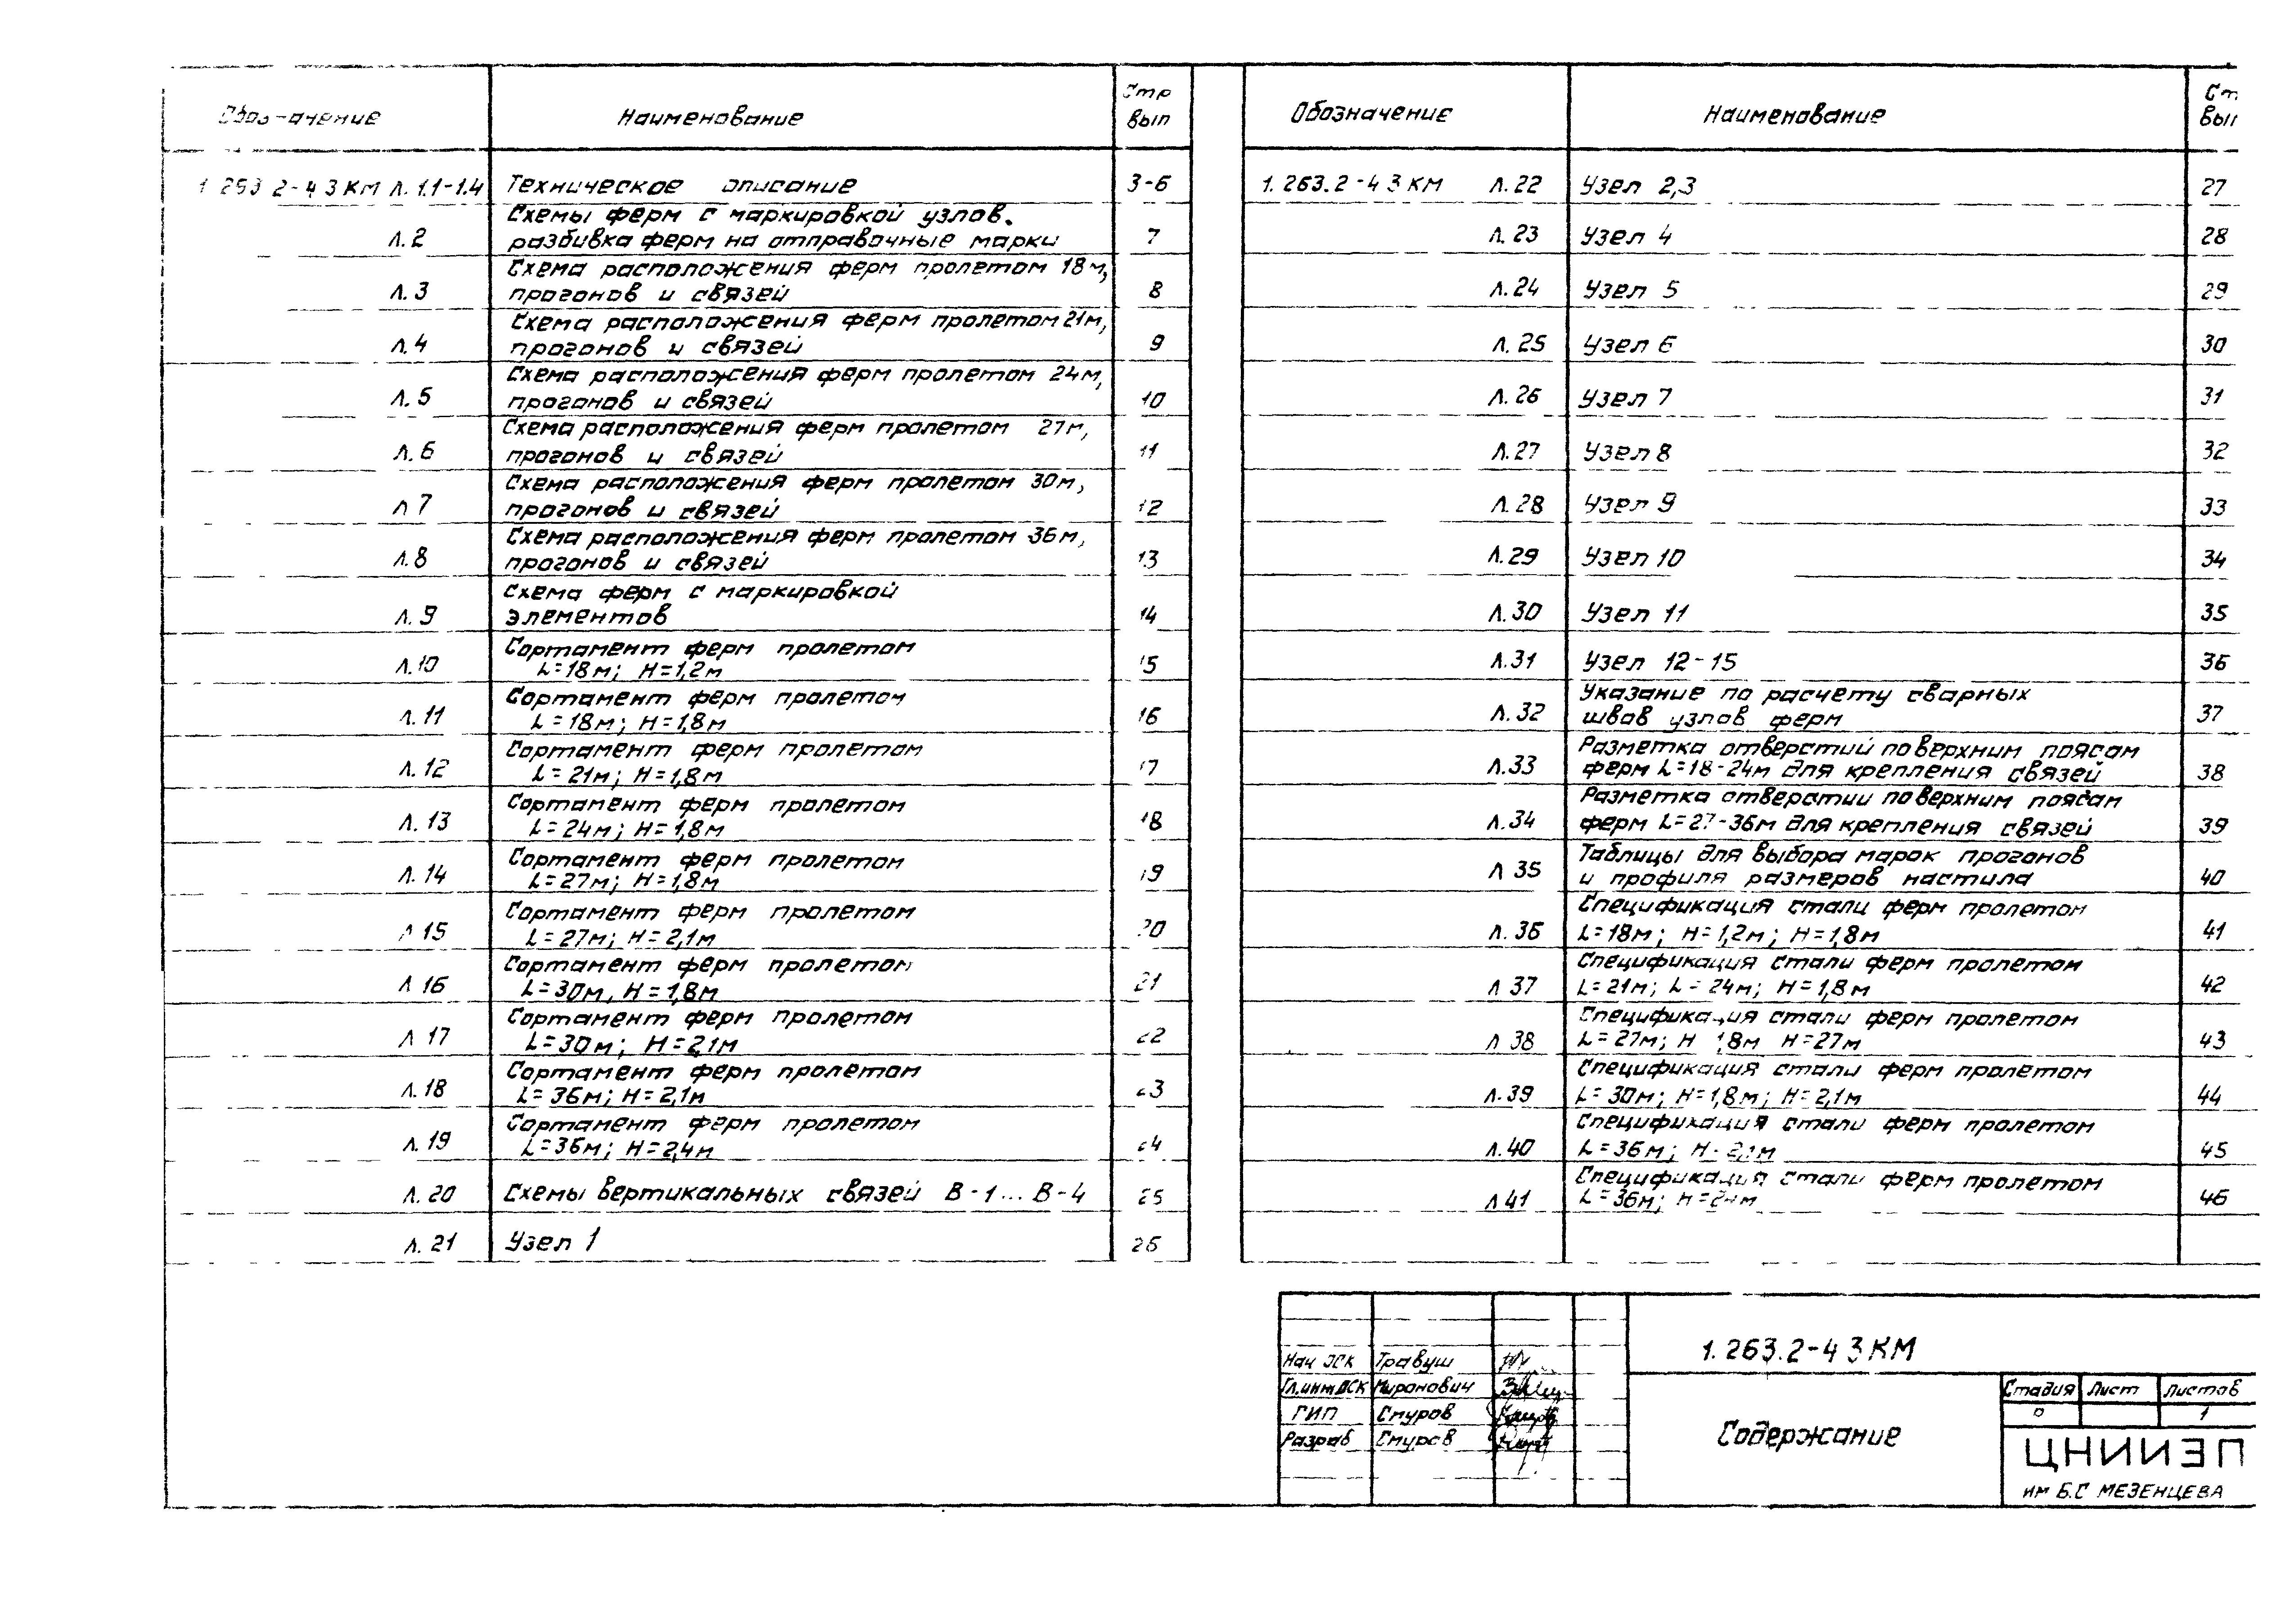 Обозначение Наименование Стр
вып
1.263.2-4 3 КМ Л. 1.1-1.4 Техническое описание 3-6
Схемы ферм с маркировкой узлов.
Л. 2 разбивка ферм на отправочные марки 7
Схема расположения ферм пролетом 18м,
Л. 3 прогонов и связей 8
Схема расположения ферм пролетом 21м,
Л. 4 прогонов и связей 9
Схема расположения ферм пролетом 24м,
Л. 5 прогонов и связей 10
Схема расположения ферм пролетом 27м,
Л. 6 прогонов и связей 11
Схема расположения ферм пролетом 30м,
Л 7 прогонов и связей 12
Схема расположения ферм пролетом 36м,
Л. 8 прогонов и связей 13
Схема ферм с маркировкой
Л. 9 элементов 14
Сортамент ферм пролетом
Л. 10 L=18м; H=1,2м 15
Сортамент ферм пролетом
Л. 11 L=18м; H=1,8м 16
Сортамент ферм пролетом
Л. 12 L=21м; H=1,8м 17
Сортамент ферм пролетом
Л. 13 L=24м; H=1,8м 18
Сортамент ферм пролетом
Л. 14 L=27м; H=1,8м 19
Сортамент ферм пролетом
Л 15 L=27м; H=2,1м 20
Сортамент ферм пролетом
Л 16 L=30м, H=1,8м 21
Сортамент ферм пролетом
Л 17 L=30м; H=2,1м 22
Сортамент ферм пролетом
Л. 18 L=36м; H=2,1м 23
Сортамент ферм пролетом
Л. 19 L=36м; H=2,4м 24
Л. 20 Схемы вертикальных связей В-1... В-4 25
Л. 21 Узел 1 26
Обозначение Наименование Ст
вып
1.263.2-4 3 КМ Л. 22 Узел 2,3 27
Л. 23 Узел 4 28
Л. 24 Узел 5 29
Л. 25 Узел 6 30
Л. 26 Узел 7 31
Л. 27 Узел 8 32
Л. 28 Узел 9 33
Л. 29 Узел 10 34
Л. 30 Узел 11 35
Л. 31 Узел 12-15 36
Указание по расчету сварных
Л. 32 швов узлов ферм 37
Разметка отверстий по верхним поясам
Л. 33 ферм L=18-24м для крепления связей 38
Разметка отверстии по верхним поясам
Л. 34 ферм L=27-36м для крепления связей 39
Таблицы для выбора марок прогонов
Л 35 и профиля размеров настила 40
Спецификация стали ферм пролетом
Л. 36 L=18м; H=1,2м; H=1,8м 41
Спецификация стали ферм пролетом
Л 37 L=21м; L=24м; H=1,8м 42
Спецификация стали ферм пролетом
Л 38 L=27м; H 1,8м H=27м 43
Спецификация стали ферм пролетом
Л. 39 L=30м; H=1,8м; H=2,1м 44
Спецификация стали ферм пролетом
Л. 40 L=36м; H=2,1м 45
Спецификация стали ферм пролетом
Л 41 L=36м; H=24м 46
1.263.2-4 3 КМ
Нач ОСК Травуш
Гл.инж ОСК Миронович
ГИП Смуров
Разраб Смуров
Содержание
Стадия Лист Листов
Р 1
ЦНИИЭП
им Б.С МЕЗЕНЦЕВА